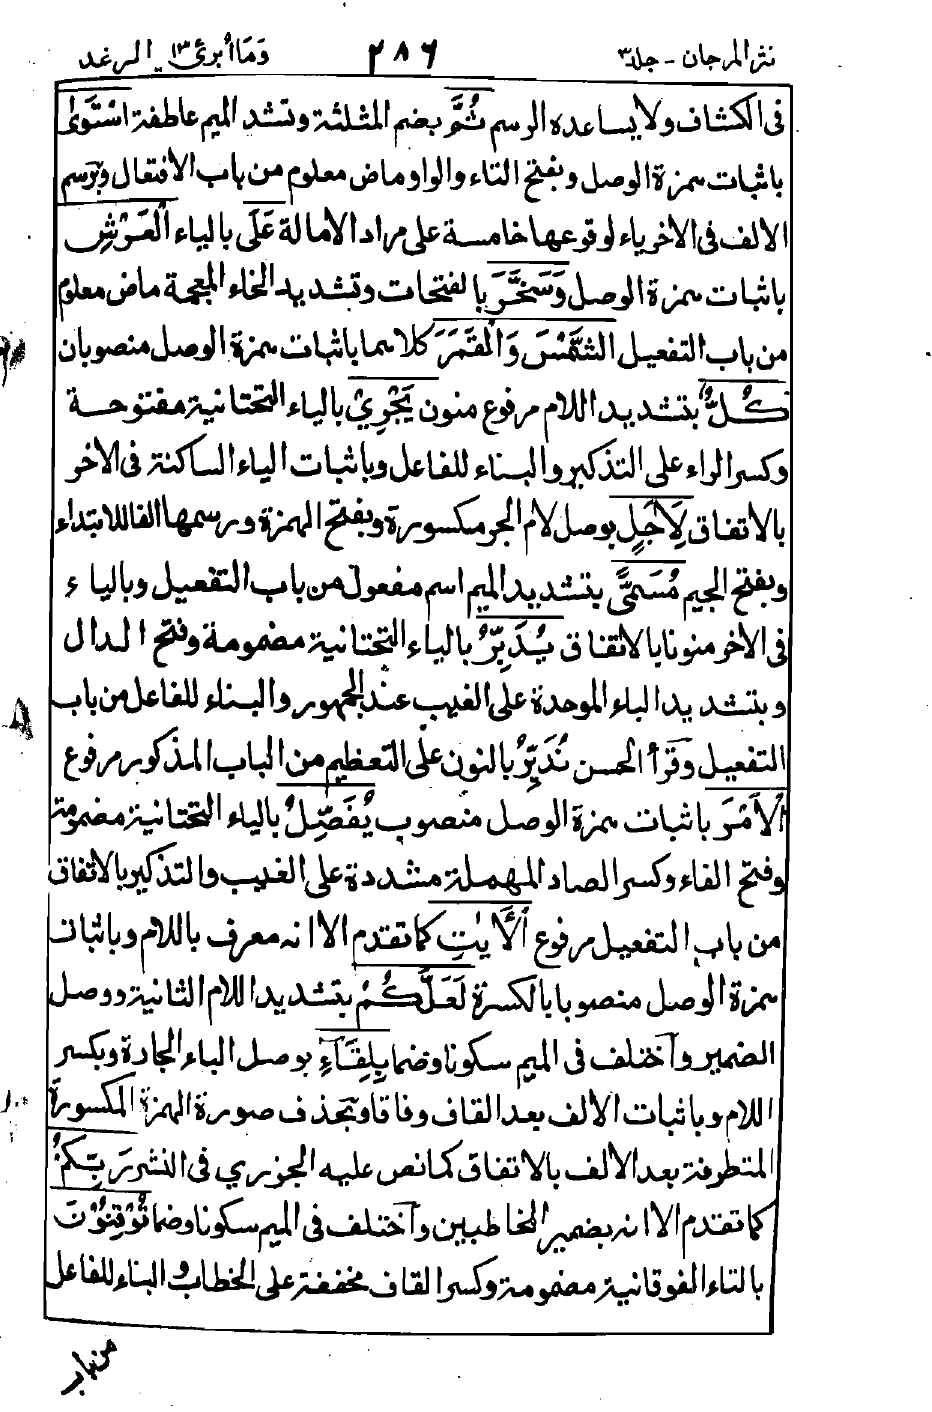 نثر المرجان - جلد٣ ٢٨٦ وَمَا أُبرئ ١٣ الرعد
فى الكشاف ولا يساعده الرسم ثُمَّ بضم المثلثة وتشد الميم عاطفة اسْتَوٰى
باثبات همزة الوصل وبفتح التاء والواو ماض معلوم من باب الافتعال ويرسم
الالف فى الاخر ياء لوقوعها خامسة على مراد الامالة عَلَى بالياء الْعَرْشِ
باثبات همزة الوصل وَسَخَّرَ بالفتحات وتشديد الخاء المعجمة ماض معلوم
من باب التفعيل الشَّمْسَ وَالْقَمَرَ كلاهما باثبات همزة الوصل منصوبان
كُلٌّ بتشديد اللام مرفوع منون يَجْرِيْ بالياء التحتانية مفتوحة
وكسر الراء على التذكير والبناء للفاعل وباثبات الياء الساكنة فى الاخر
بالاتفاق لِاَجَلٍ بوصل لام الجر مكسورة وبفتح الهمزة ورسمها الفا للابتداء
وبفتح الجيم مُسَمًّى بتشديد الميم اسم مفعول من باب التفعيل وبالياء
فى الاخر منونا بالاتفاق يُدَبِّرُ بالياء التحتانية مضمومة وفتح الدال
وبتشديد الباء الموحدة على الغيب عند الجمهور والبناء للفاعل من باب
التفعيل وقرأ الحسن نُدَبِّرُ بالنون على التعظيم من الباب المذكور مرفوع
الْاَمْرَ باثبات همزة الوصل منصوب يُفَصِّلُ بالياء التحتانية مضمومة
وفتح الفاء وكسر الصاد المهملة مشددة على الغيب والتذكير بالاتفاق
من باب التفعيل مرفوع الْاٰيٰتِ كما تقدم الا انه معرف باللام وباثبات
همزة الوصل منصوبا بالكسرة لَعَلَّكُمْ بتشديد اللام الثانية ووصل
الضمير وٱختلف فى الميم سكونا وضما بِلِقَآءِ بوصل الباء الجارة وبكسر
اللام وباثبات الالف بعد القاف وفاقا وبحذف صورة الهمزة المكسورة
المتطرفة بعد الالف بالاتفاق كما نص عليه الجزري فى النشر رَبِّكُمْ
كما تقدم الا انه بضمير المخاطبين وٱختلف فى الميم سكونا وضما تُوْقِنُوْنَ
بالتاء الفوقانية مضمومة وكسر القاف مخففة على الخطاب والبناء للفاعل
من باب